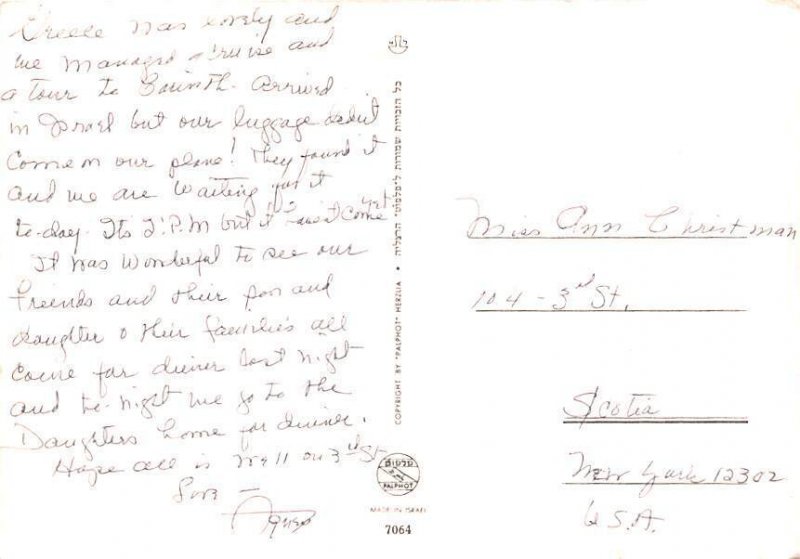 Greece was lovely and
we managed a cruise and
a tour to Corinth. Arrived
in Israel but our luggage didn't
come on our plane! They found it
and we are waiting for it
to-day. Its 2 P.M but it hasn't come yet.
It was wonderful to see our
friends and their son and
daughter & their families all
came for dinner last night
and to-night we go to the
Daughters home for dinner.
Hope all is well on 3rd St
Love –
Agnes
כל הזכויות שמורות ל"פלפוט" הרצליה
COPYRIGHT BY "PALPHOT" HERZLIA
פלפוט
PALPHOT
MADE IN ISRAEL
7064
Miss Ann Christman
104 - 3rd St.
Scotia
New York 12302
USA.